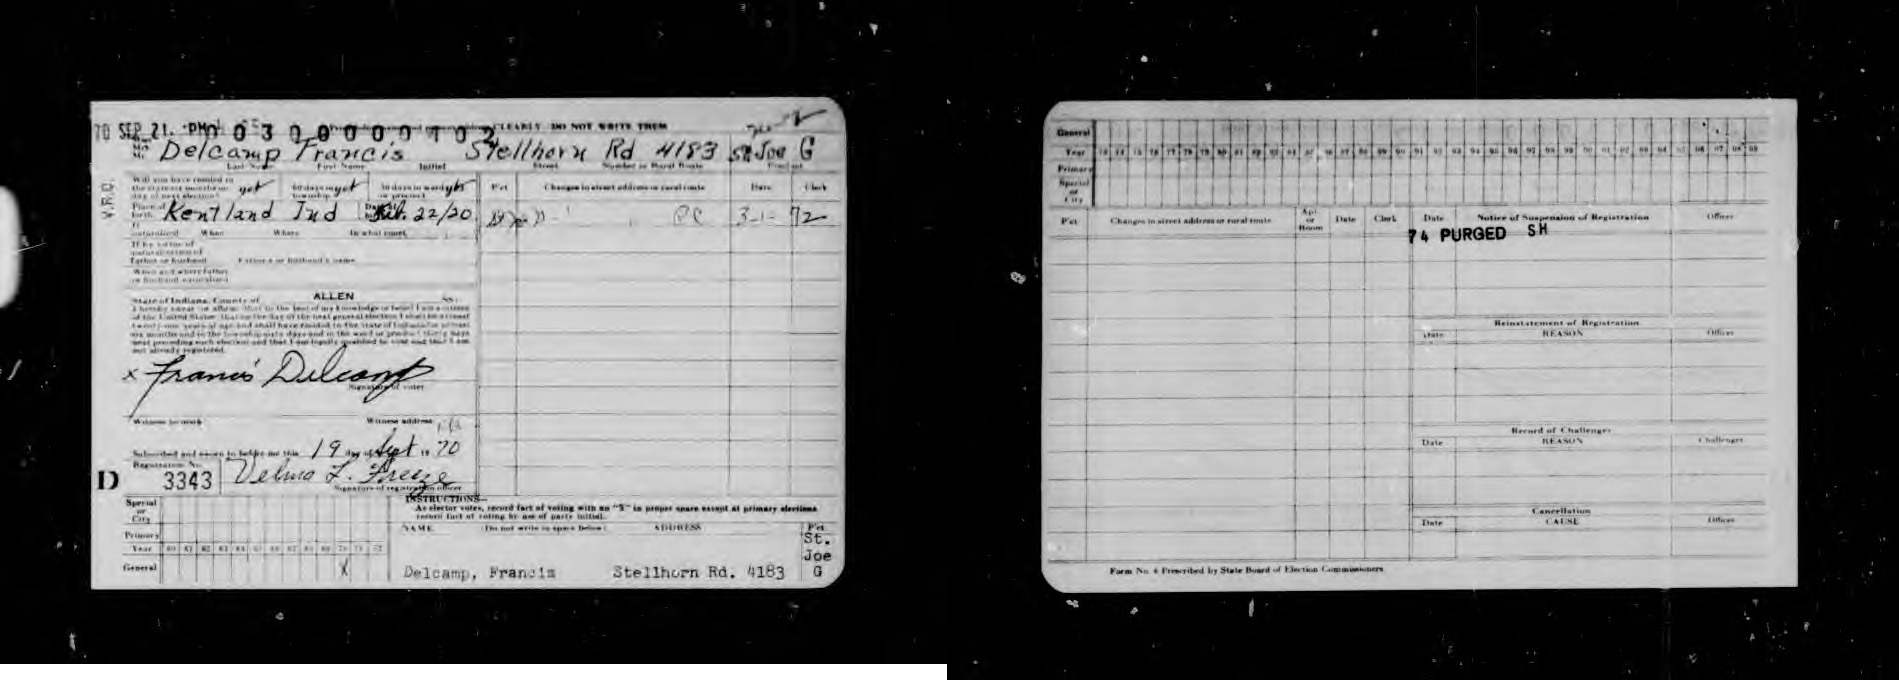 70 SEP 21. PM 0030000010 CLEARLY. DO NOT WRITE THEM
Mrs.
Mr. Delcamp Francis Stellhorn Rd 4183 St Joe G
Last Name First Name Initial Street Number or Rural Route Precinct
V.R.G.
Will you have resided in
the state six months on yes 60 days in yes 30 days in ward yes P'ct Changes in street address or rural route Date Clerk
day of next election? township? or precinct
Place of
birth Kentland Ind Feb. 22/20 St Joe PC 3-1-72
If
naturalized When Where In what court
If by virtue of
naturalization of
Father or husband Father's or husband's name
When and where father
or husband naturalized
State of Indiana, County of ALLEN SS:
I hereby swear (or affirm) that to the best of my knowledge or belief I am a citizen
of the United States; that on the day of the next general election I shall be at least
twenty-one years of age and shall have resided in the state of Indiana for at least
six months and in the township sixty days and in the ward or precinct thirty days
next preceding such election and that I am legally qualified to vote and that I am
not already registered.
x Francis Delcamp
Signature of voter
Witness to mark Witness address
Subscribed and sworn to before me this 19 day of Sept 19 70
Registration No.
D 3343 Velma L. Freeze
Signature of registration officer
INSTRUCTIONS—
As elector votes, record fact of voting with an "X" in proper space except at primary elections
record fact of voting by use of party initial.
NAME (Do not write in space below) ADDRESS P'ct
Special
or
City
Primary
Year 60 61 62 63 64 65 66 67 68 69 70 71 72
General X
Delcamp, Francis Stellhorn Rd. 4183 St.
Joe
G
General
Year 73 74 75 76 77 78 79 80 81 82 83 84 85 86 87 88 89 90 91 92 93 94 95 96 97 98 99 00 01 02 03 04 05 06 07 08 09
Primary
Special
or
City
P'ct Changes in street address or rural route Apt or Room Date Clerk Date Notice of Suspension of Registration Officer
74 PURGED SH
Reinstatement of Registration
Date REASON Officer
Record of Challenges
Date REASON Challenger
Cancellation
Date CAUSE Officer
Form No. 4 Prescribed by State Board of Election Commissioners